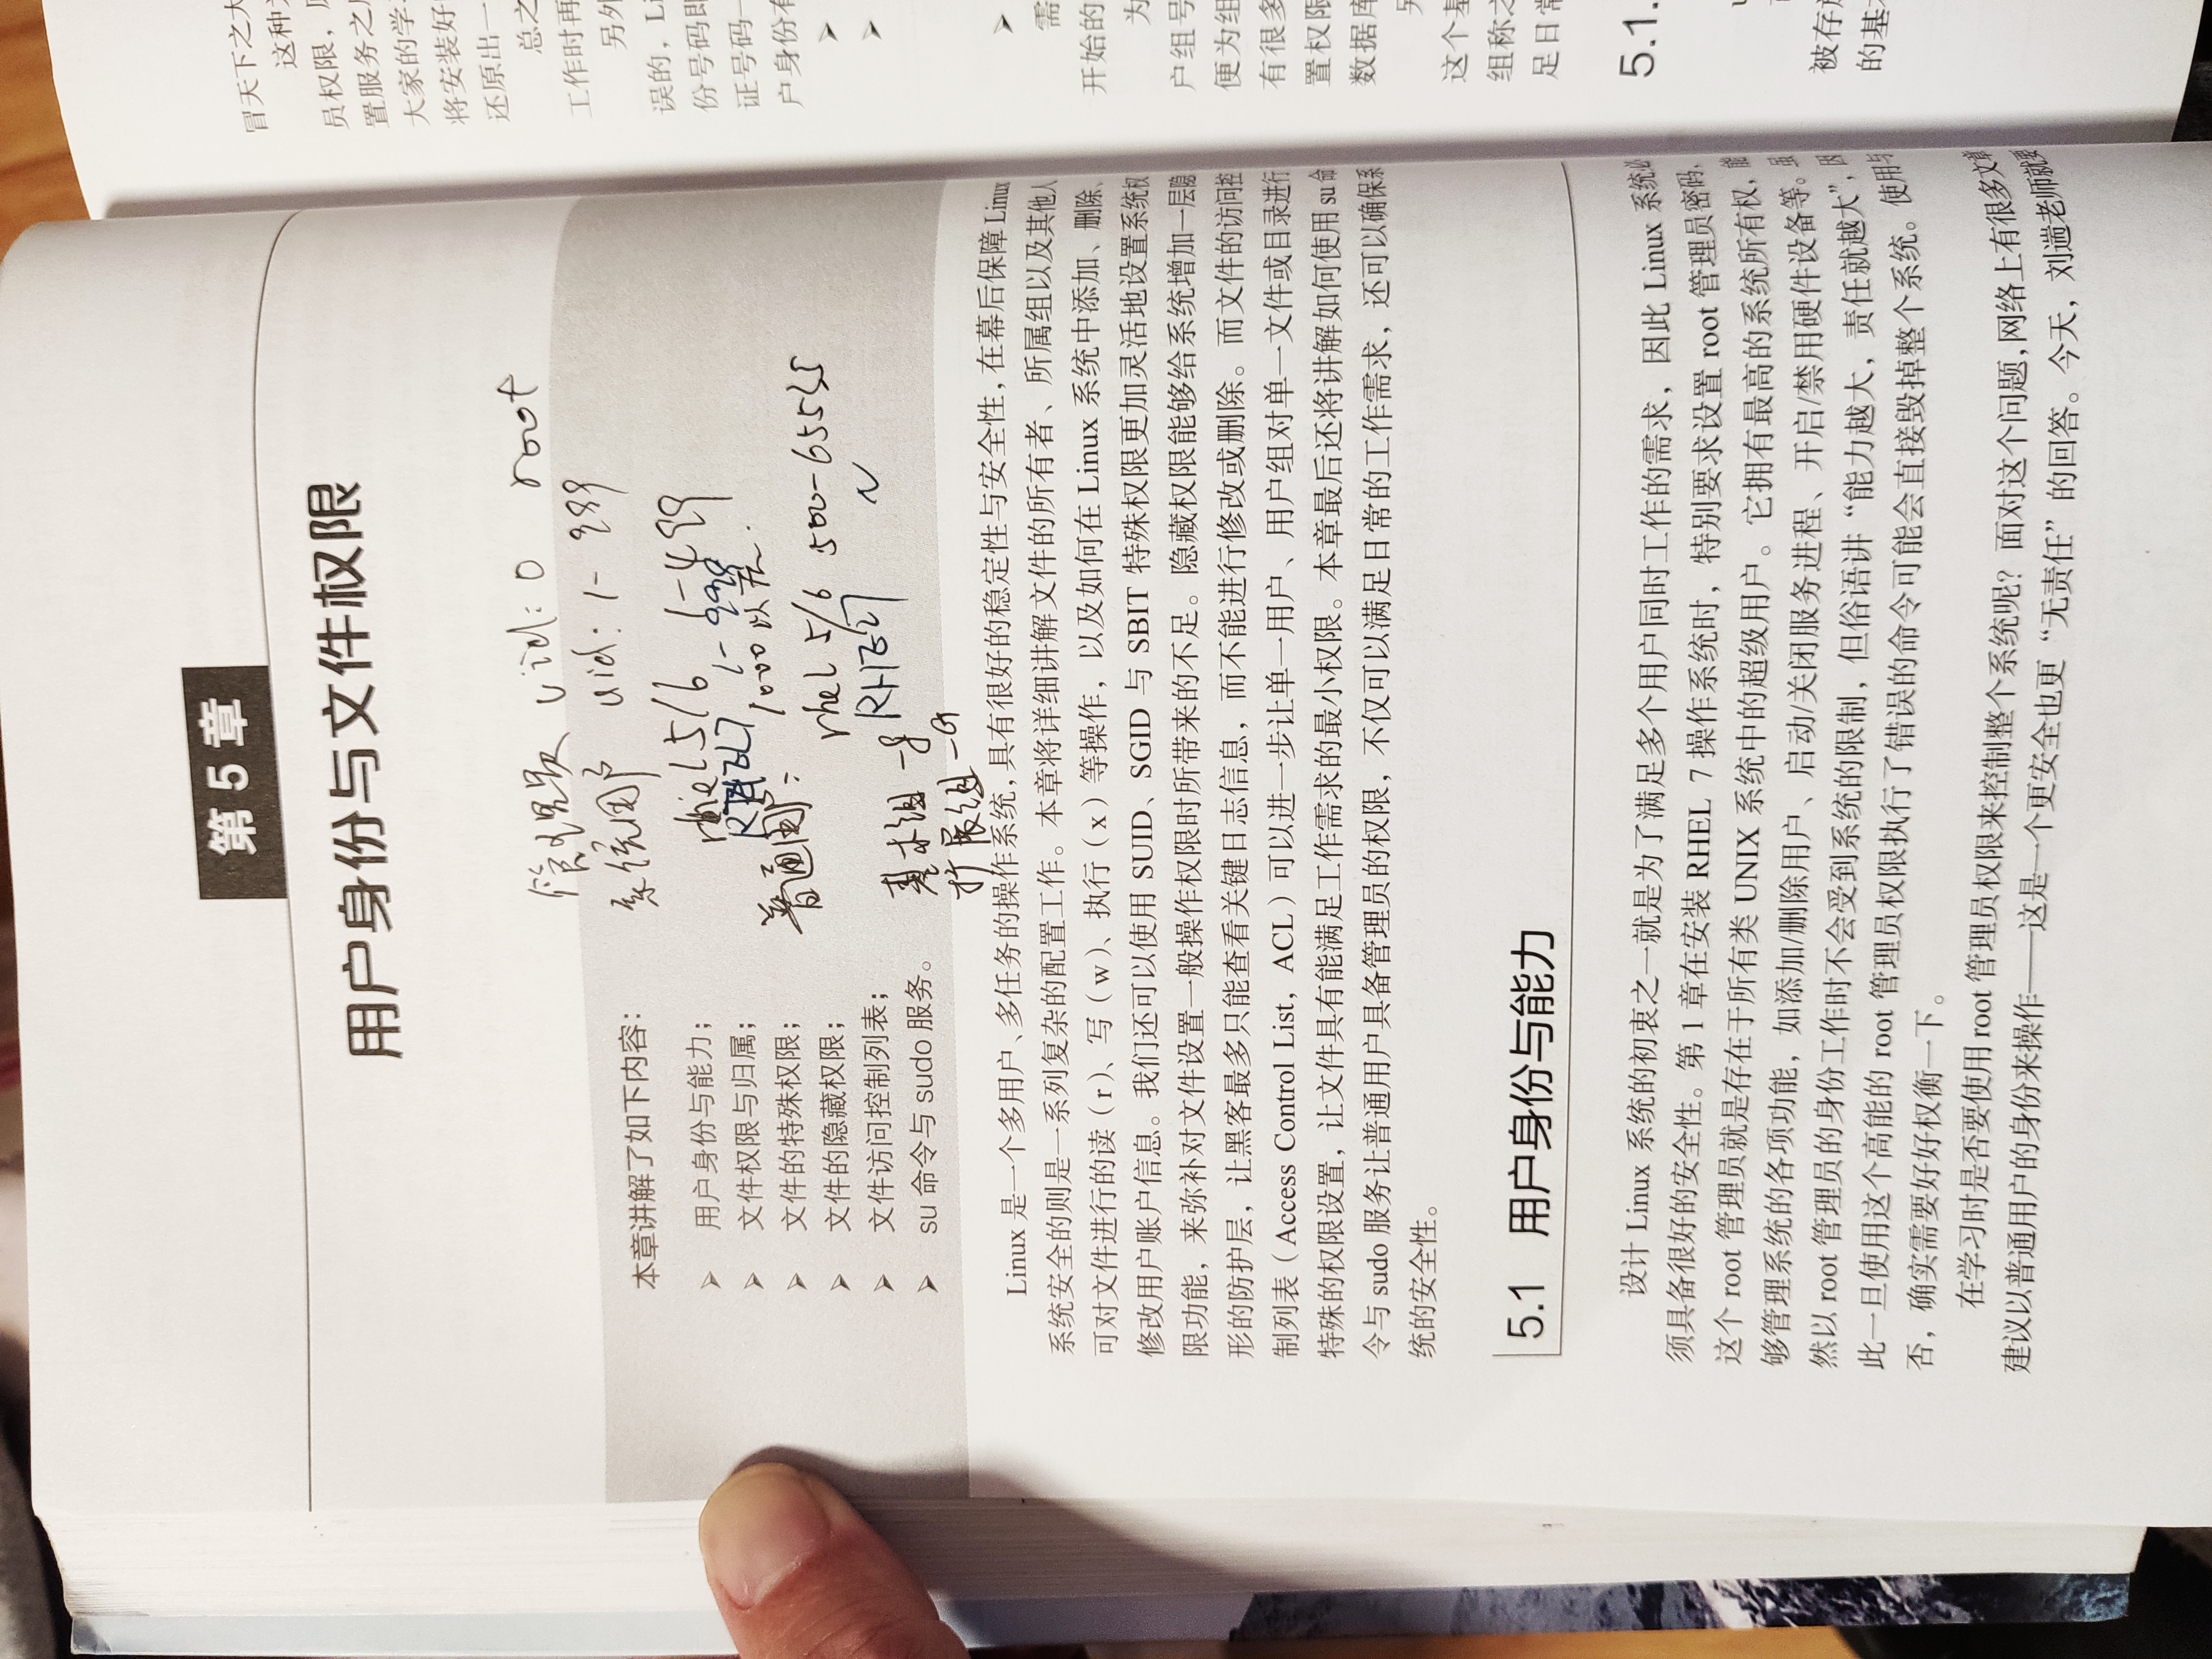 第5章
用户身份与文件权限
管理员 uid:0 root
系统用户 uid:1-999
rhel5/6 1-499
RHEL7 1-999
普通用户: 1000以后.
rhel 5/6 500-65535
RHEL7
基本组 -g
扩展组 -G
本章讲解了如下内容：
➢ 用户身份与能力；
➢ 文件权限与归属；
➢ 文件的特殊权限；
➢ 文件的隐藏权限；
➢ 文件访问控制列表；
➢ su 命令与 sudo 服务。
Linux 是一个多用户、多任务的操作系统，具有很好的稳定性与安全性，在幕后保障 Linux
系统安全的则是一系列复杂的配置工作。本章将详细讲解文件的所有者、所属组以及其他人
可对文件进行的读（r）、写（w）、执行（x）等操作，以及如何在 Linux 系统中添加、删除、
修改用户账户信息。我们还可以使用 SUID、SGID 与 SBIT 特殊权限更加灵活地设置系统权
限功能，来弥补对文件设置一般操作权限时所带来的不足。隐藏权限能够给系统增加一层隐
形的防护层，让黑客最多只能查看关键日志信息，而不能进行修改或删除。而文件的访问控
制列表（Access Control List，ACL）可以进一步让单一用户、用户组对单一文件或目录进行
特殊的权限设置，让文件具有能满足工作需求的最小权限。本章最后还将讲解如何使用 su 命
令与 sudo 服务让普通用户具备管理员的权限，不仅可以满足日常的工作需求，还可以确保系
统的安全性。
5.1 用户身份与能力
设计 Linux 系统的初衷之一就是为了满足多个用户同时工作的需求，因此 Linux 系统必
须具备很好的安全性。第 1 章在安装 RHEL 7 操作系统时，特别要求设置 root 管理员密码，
这个 root 管理员就是存在于所有类 UNIX 系统中的超级用户。它拥有最高的系统所有权，能
够管理系统的各项功能，如添加/删除用户、启动/关闭服务进程、开启/禁用硬件设备等。虽
然以 root 管理员的身份工作时不会受到系统的限制，但俗语讲“能力越大，责任就越大”，因
此一旦使用这个高能的 root 管理员权限执行了错误的命令可能会直接毁掉整个系统。使用与
否，确实需要好好权衡一下。
在学习时是否要使用 root 管理员权限来控制整个系统呢？面对这个问题，网络上有很多文章
建议以普通用户的身份来操作——这是一个更安全也更“无责任”的回答。今天，刘遄老师就要
冒天下之大
这种
员权限，
置服务之
大家的学
将安装好
还原出一
总之
工作时再
另外
误的，Li
份号码即
证号码一
户身份有
➢
➢
➢
需
开始的
为
户组号
便为组
有很多
置权限
数据库
另
这个基
组称之
足日常
5.1.
被存放
的基本